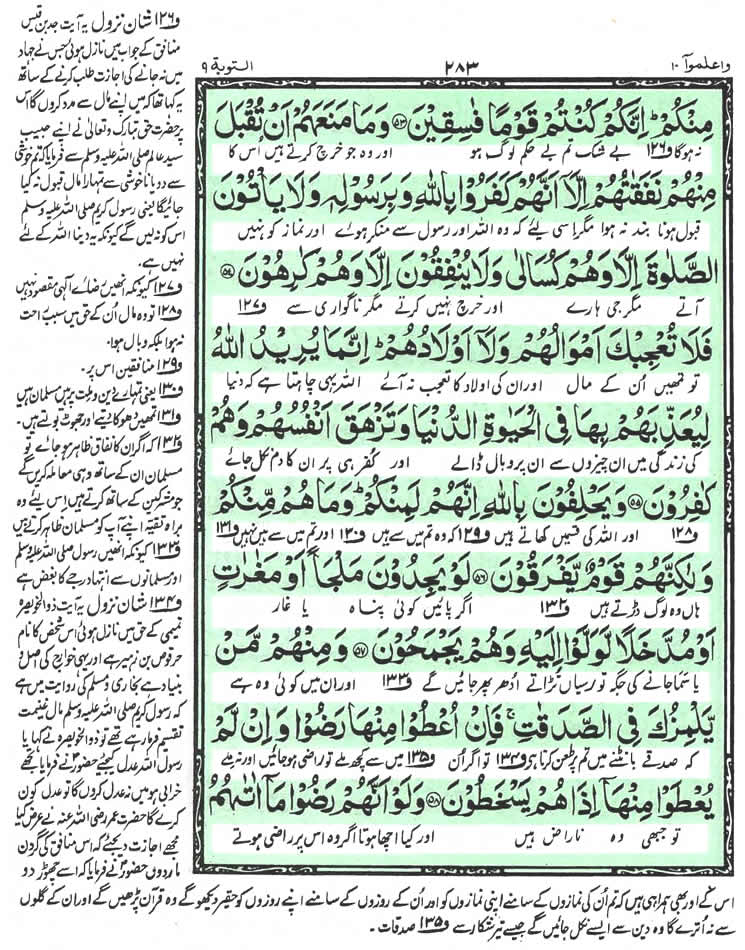 واعلموآ ١٠
٢٨٣
التوبة ٩
مِنْكُمْ ؕ اِنَّكُمْ كُنْتُمْ قَوْمًا فٰسِقِيْنَ ﴿۵۳﴾ وَمَا مَنَعَهُمْ اَنْ تُقْبَلَ
نہ ہوگا ف۱۲۶ بے شک تم بے حکم لوگ ہو اور وہ جو خرچ کرتے ہیں اس کا
مِنْهُمْ نَفَقٰتُهُمْ اِلَّاۤ اَنَّهُمْ كَفَرُوْا بِاللّٰهِ وَبِرَسُوْلِهٖ وَلَا يَاْتُوْنَ
قبول ہونا بند نہ ہوا مگر اسی لیئے کہ وہ اللہ اور رسول سے منکر ہوئے اور نماز کو نہیں
الصَّلٰوةَ اِلَّا وَهُمْ كُسَالٰى وَلَا يُنْفِقُوْنَ اِلَّا وَهُمْ كٰرِهُوْنَ ﴿۵۴﴾
آتے مگر جی ہارے اور خرچ نہیں کرتے مگر ناگواری سے ف۱۲۷
فَلَا تُعْجِبْكَ اَمْوَالُهُمْ وَلَاۤ اَوْلَادُهُمْ ؕ اِنَّمَا يُرِيْدُ اللّٰهُ
تو تمھیں اُن کے مال اور ان کی اولاد کا تعجب نہ آئے اللہ یہی چاہتا ہے کہ دنیا
لِيُعَذِّبَهُمْ بِهَا فِى الْحَيٰوةِ الدُّنْيَا وَتَزْهَقَ اَنْفُسُهُمْ وَهُمْ
کی زندگی میں ان چیزوں سے ان پر وبال ڈالے اور کفر ہی پر ان کا دم نکل جائے
كٰفِرُوْنَ ﴿۵۵﴾ وَيَحْلِفُوْنَ بِاللّٰهِ اِنَّهُمْ لَمِنْكُمْ ؕ وَمَا هُمْ مِّنْكُمْ
ف۱۲۸ اور اللہ کی قسمیں کھاتے ہیں ف۱۲۹ کہ وہ تم میں سے ہیں ف۱۳۰ اور تم میں سے ہیں نہیں ف۱۳۱
وَلٰكِنَّهُمْ قَوْمٌ يَّفْرَقُوْنَ ﴿۵۶﴾ لَوْ يَجِدُوْنَ مَلْجَاً اَوْ مَغٰرٰتٍ
ہاں وہ لوگ ڈرتے ہیں ف۱۳۲ اگر پائیں کوئی پناہ یا غار
اَوْ مُدَّخَلًا لَّوَلَّوْا اِلَيْهِ وَهُمْ يَجْمَحُوْنَ ﴿۵۷﴾ وَمِنْهُمْ مَّنْ
یا سما جانے کی جگہ تو رسیاں تڑاتے اُدھر پھر جائیں گے ف۱۳۳ اور ان میں کوئی وہ ہے
يَّلْمِزُكَ فِى الصَّدَقٰتِ ۚ فَاِنْ اُعْطُوْا مِنْهَا رَضُوْا وَاِنْ لَّمْ
کہ صدقے بانٹنے میں تم پر طعن کرتا ہے ف۱۳۴ تو اگر اُن ف۱۳۵ میں سے کچھ ملے تو راضی ہو جائیں اور نہ ملے
يُعْطَوْا مِنْهَاۤ اِذَا هُمْ يَسْخَطُوْنَ ﴿۵۸﴾ وَلَوْ اَنَّهُمْ رَضُوْا مَاۤ اٰتٰىهُمُ
تو جبھی وہ ناراض ہیں اور کیا اچھا ہوتا اگر وہ اس پر راضی ہوتے
ف۱۲۶ شان نزول یہ آیت جد بن قیس
منافق کے جواب میں نازل ہوئی جس نے جہاد
میں نہ جانے کی اجازت طلب کرنے کے ساتھ
یہ کہا تھا کہ میں اپنے مال سے مدد کروں گا اس
پر حضرت حق تبارک وتعالٰی نے اپنے حبیب
سید عالم صلی اللہ علیہ وسلم سے فرمایا کہ تم خوشی
سے دو یا ناخوشی سے تمہارا مال قبول نہ کیا
جائیگا یعنی رسول کریم صلی اللہ علیہ وسلم
اس کو نہ لیں گے کیونکہ یہ دینا اللہ کے لئے
نہیں ہے۔
ف۱۲۷ کیونکہ انھیں رضائے الٰہی مقصود نہیں
ف۱۲۸ تو وہ مال اُن کے حق میں سبب راحت
نہ ہوا بلکہ وبال ہوا۔
ف۱۲۹ منافقین اس پر۔
ف۱۳۰ یعنی تمہارے دین وملت پر ہیں مسلمان ہیں
ف۱۳۱ تمھیں دھوکا دیتے اور جھوٹ بولتے ہیں۔
ف۱۳۲ کہ اگر ان کا نفاق ظاہر ہو جائے تو
مسلمان ان کے ساتھ وہی معاملہ کریں گے
جو مشرکین کے ساتھ کرتے ہیں اس لیئے وہ
براہ تقیہ اپنے آپ کو مسلمان ظاہر کرتے ہیں
ف۱۳۳ کیونکہ انھیں رسول صلی اللہ علیہ وسلم
اور مسلمانوں سے انتہا درجے کا بغض ہے
ف۱۳۴ شان نزول یہ آیت ذوالخویصرہ
تمیمی کے حق میں نازل ہوئی اس شخص کا نام
حرقوص بن زہیر ہے اور یہی خوارج کی اصل و
بنیاد ہے بخاری و مسلم کی روایت میں ہے
کہ رسول کریم صلی اللہ علیہ وسلم مال غنیمت
تقسیم فرما رہے تھے تو ذوالخویصرہ نے کہا یا
رسول اللہ عدل کیجئے حضور نے فرمایا تجھے
خرابی ہو میں نہ عدل کروں گا تو عدل کون
کرے گا حضرت عمر رضی اللہ عنہ نے عرض کیا
مجھے اجازت دیجئے کہ اس منافق کی گردن
مار دوں حضور نے فرمایا کہ اسے چھوڑ دو
اس کے اور بھی ہمراہی ہیں کہ تم اُن کی نمازوں کے سامنے اپنی نمازوں کو اور اُن کے روزوں کے سامنے اپنے روزوں کو حقیر دیکھو گے وہ قرآن پڑھیں گے اور ان کے گلوں
سے نہ اُترے گا وہ دین سے ایسے نکل جائیں گے جیسے تیر شکار سے ف۱۳۵ صدقات۔